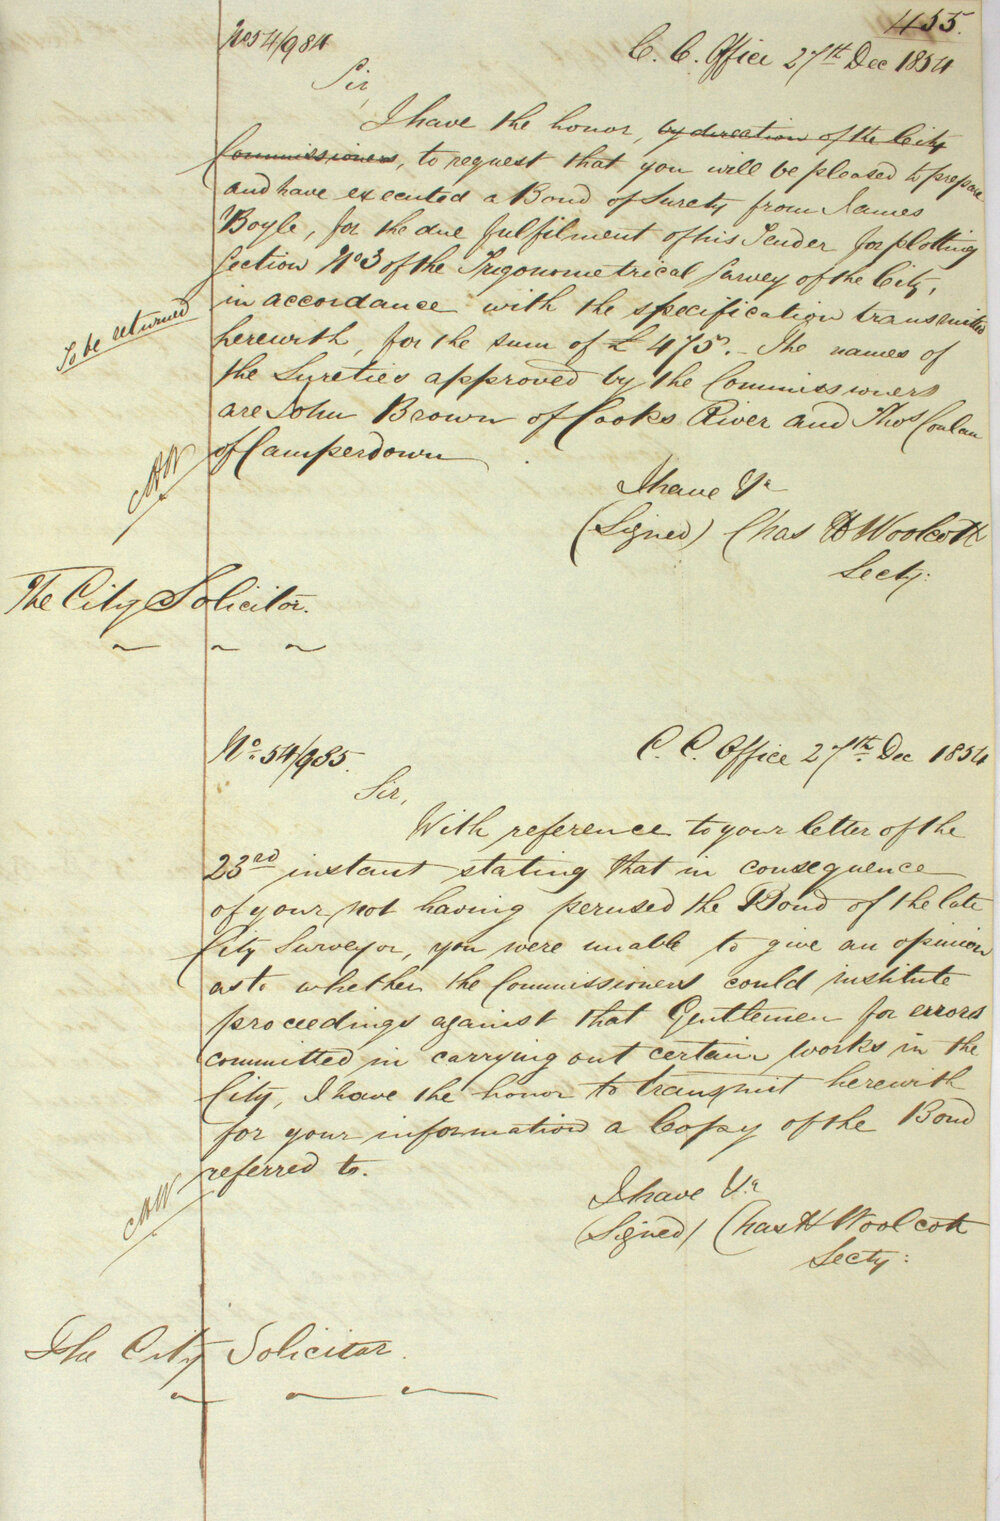 455.
No 54/984
C. C. Office 27th Dec 1854
Sir,
I have the honor, by direction of the City
Commissioners, to request that you will be pleased to prepare
and have executed a Bond of Surety from James
Boyle, for the due fulfilment of his Tender for plotting
Section No 3 of the Trigonometrical Survey of the City,
in accordance with the specification transmitted
To be returned
herewith, for the sum of £475. – The names of
the Sureties approved by the Commissioners
are John Brown of Cooks River and Thos Conlan
of Camperdown
I have &c
(Signed) Chas H Woolcott
Secty:
The City Solicitor.
No. 54/985.
C. C. Office 27th Dec 1854
Sir,
With reference to your letter of the
23rd instant stating that in consequence
of your not having perused the Bond of the late
City Surveyor, you were unable to give an opinion
as to whether the Commissioners could institute
proceedings against that Gentlemen for errors
committed in carrying out certain works in the
City, I have the honor to transmit herewith
for your information a Copy of the Bond
referred to.
I have &c
(Signed) Chas H Woolcott
Secty:
The City Solicitor.